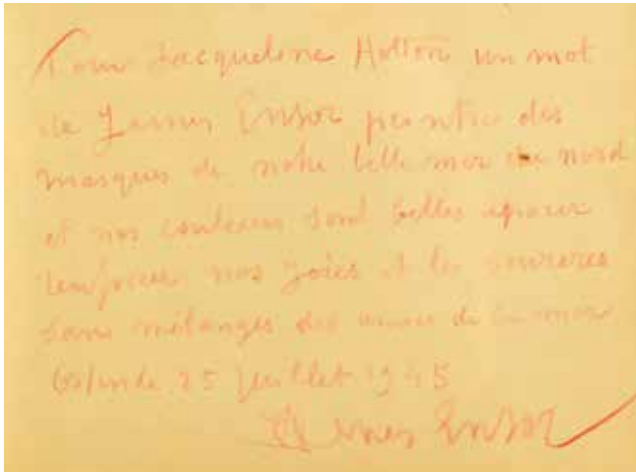 Pour Jacqueline Hotton un mot
de James Ensor peintre des
masques de notre belle mer du nord
et nos couleurs sont belles
nos joies et les sourires
sans mélanges des de la mer
Ostende 25 juillet 1945
James Ensor